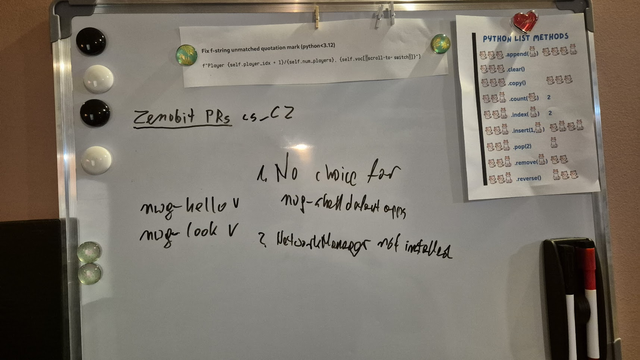 Fix f-string unmatched quotation mark (python<3.12)
f"Player {self.player_idx + 1}/{self.num_players},
Zenobit PRs cs_CZ
1. No choice for
nwg-shell default apps
nwg-hello v
nwg-look v
2. NetworkManager not installed
PYTHON LIST METHODS
.append(
.clear()
.copy()
.count( ) 2
.index( ) 2
.insert(1,
.pop(2)
.remove(
.reverse()